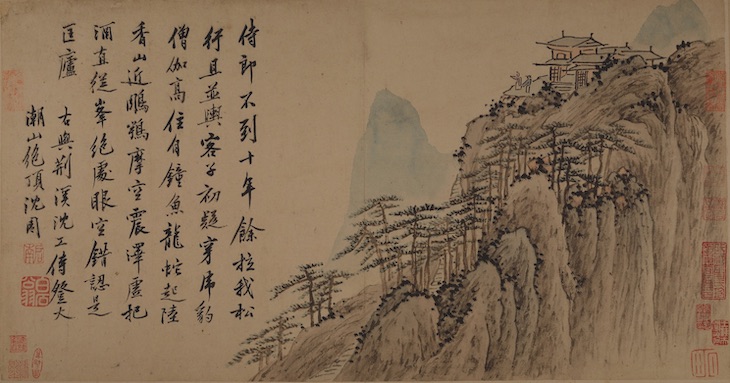 侍郎不到十年餘拉我松
行且並輿客子初疑穿虎豹
僧伽高住自鐘魚龍蛇起陸
香山近鵰鶚摩空震澤虛把
酒直從峯絕處眼空錯認是
匡廬　右與荊溪沈工侍登大
潮山絕頂沈周